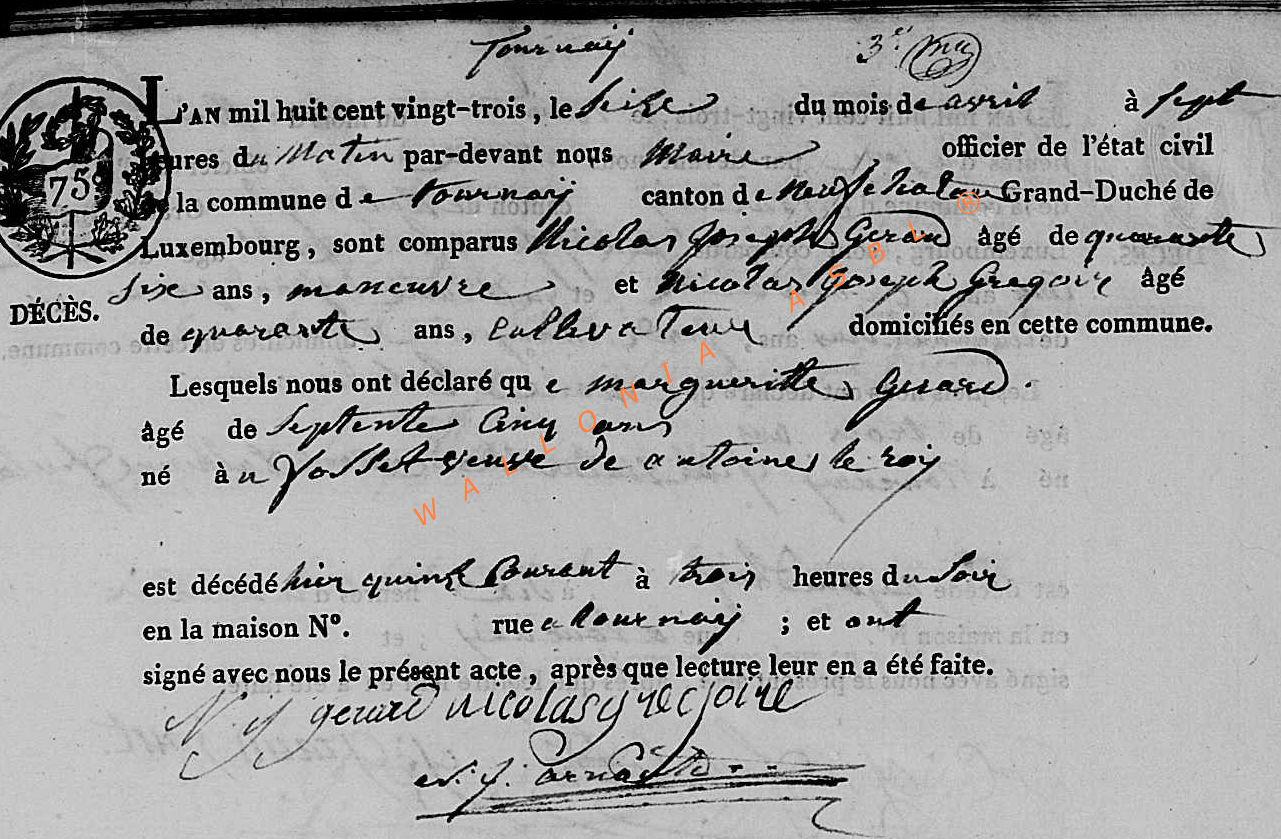 Tournaÿ 3.e
L'AN mil huit cent vingt-trois, le seise du mois de avril à sept
heures du Matin par-devant nous Maire officier de l'état civil
75 de la commune de tournaÿ canton de neufchateau Grand-Duché de
Luxembourg, sont comparus Nicolas joseph Gerard âgé de quarante
six ans, maneuvre et nicolas joseph Gregoire âgé
DÉCÈS.
de quarante ans, cultivateur domiciliés en cette commune.
Lesquels nous ont déclaré que margueritte Gerard.
âgé de septente Cinq ans
né à veuve de antoine le roÿ
est décédé hier quinse Courant à trois heures du Soir
en la maison N°. rue a tournaÿ ; et ont
signé avec nous le présent acte, après que lecture leur en a été faite.
N j gerard nicolas gregoire
WALLONIA ASBL ®